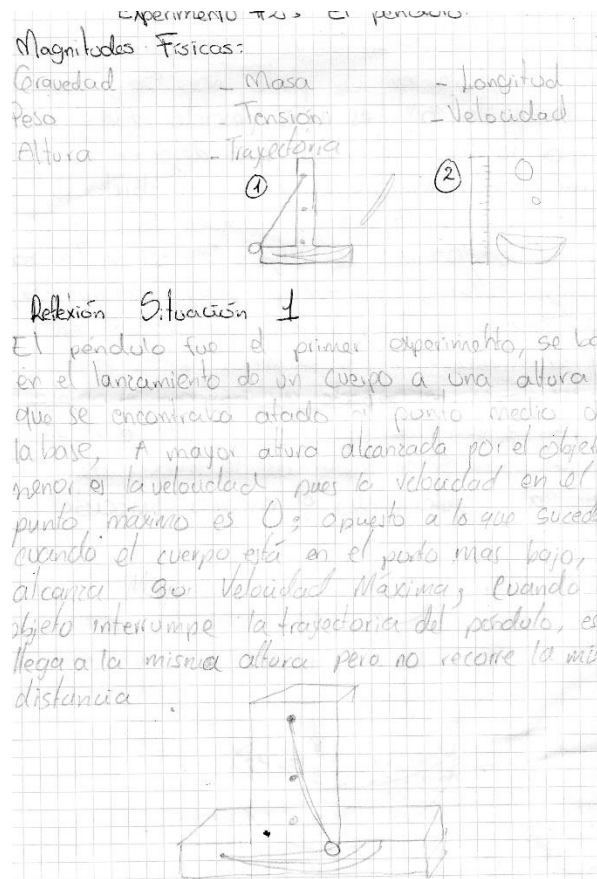 Experimento #2: El péndulo.
Magnitudes Físicas:
Gravedad - Masa - Longitud
Peso - Tensión - Velocidad
Altura - Trayectoria
1 2
Reflexión Situación 1
El péndulo fue el primer experimento, se
en el lanzamiento de un cuerpo a una altura
que se encontraba atado al punto medio
la base, A mayor altura alcanzada por el objet
menor es la velocidad pues la velocidad en el
punto máximo es 0; opuesto a lo que suced
cuando el cuerpo está en el punto mas bajo,
alcanza su Velocidad Máxima; Cuando
objeto interrumpe la trayectoria del péndulo, es
llega a la misma altura pero no recorre la mis
distancia